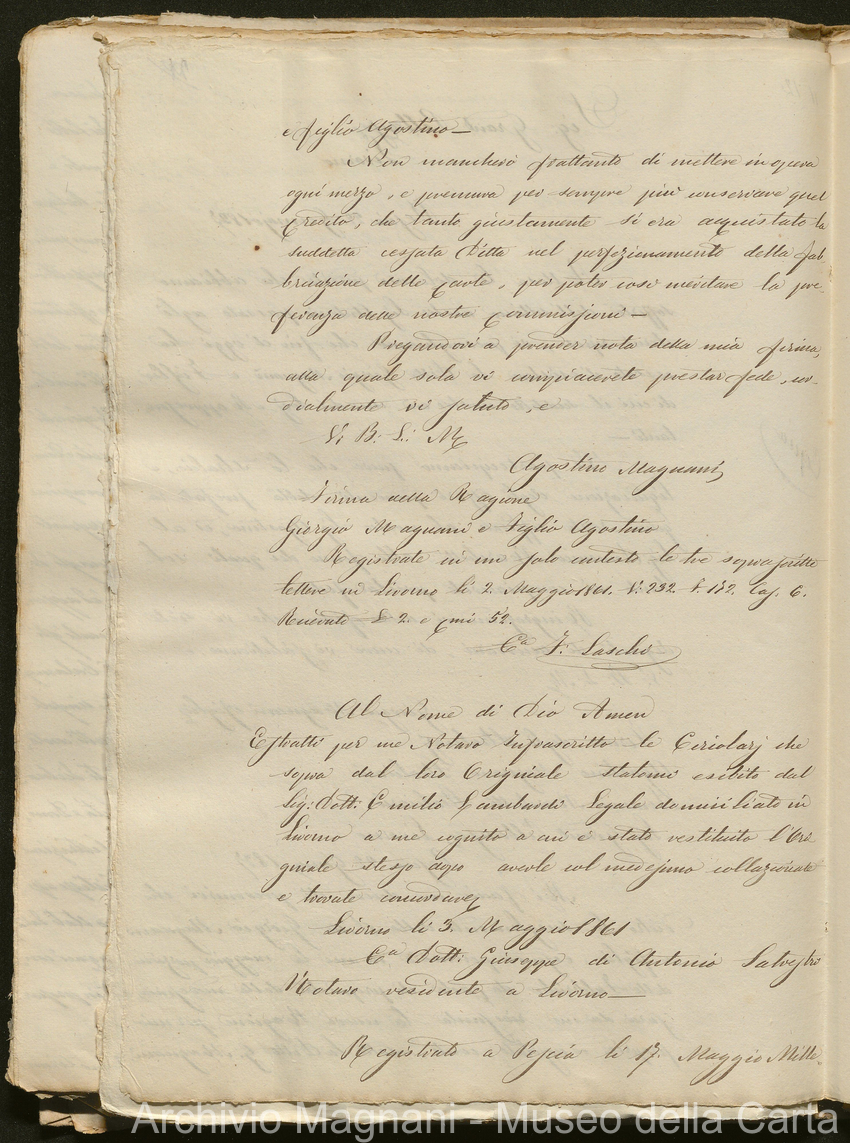 e figlio Agostino —
Non mancherò frattanto di mettere in opera
ogni mezzo, e premura per sempre più conservare quel
Credito, che tanto giustamente si era acquistato la
suddetta cessata Ditta nel perfezionamento della fab-
bricazione delle Carte, per poter così meritare la pre-
ferenza delle nostre Commissioni —
Pregandovi a prender nota della mia firma,
alla quale sola vi compiacerete prestar fede, cor-
dialmente vi saluto, e
Vi B: L: M
Agostino Magnani
Firma della Ragione
Giorgio Magnani e Figlio Agostino
Registrate in un solo contesto le tre soprascritte
lettere in Livorno li 2. Maggio 1861. V: 232. f. 172. Cas. 6.
Ricevuto £ 2. e Cmi 52.
Ca F. Laschi
Al Nome di Dio Amen
Estratti per me Notaro Infrascritto le Circolarj che
sopra dal loro Originale statomi esibito dal
Sig: Dott: Emilio Lambardi Legale domiciliato in
Livorno a me cognito a cui è stato restituito l'Ori
ginale stesso dopo averle col medesimo collazionate
e trovate concordare
Livorno li 3. Maggio 1861
Ca Dott: Giuseppe di Antonio Salvestro
Notaro residente a Livorno —
Registrato a Pescia li 17. Maggio Mille-
Archivio Magnani - Museo della Carta